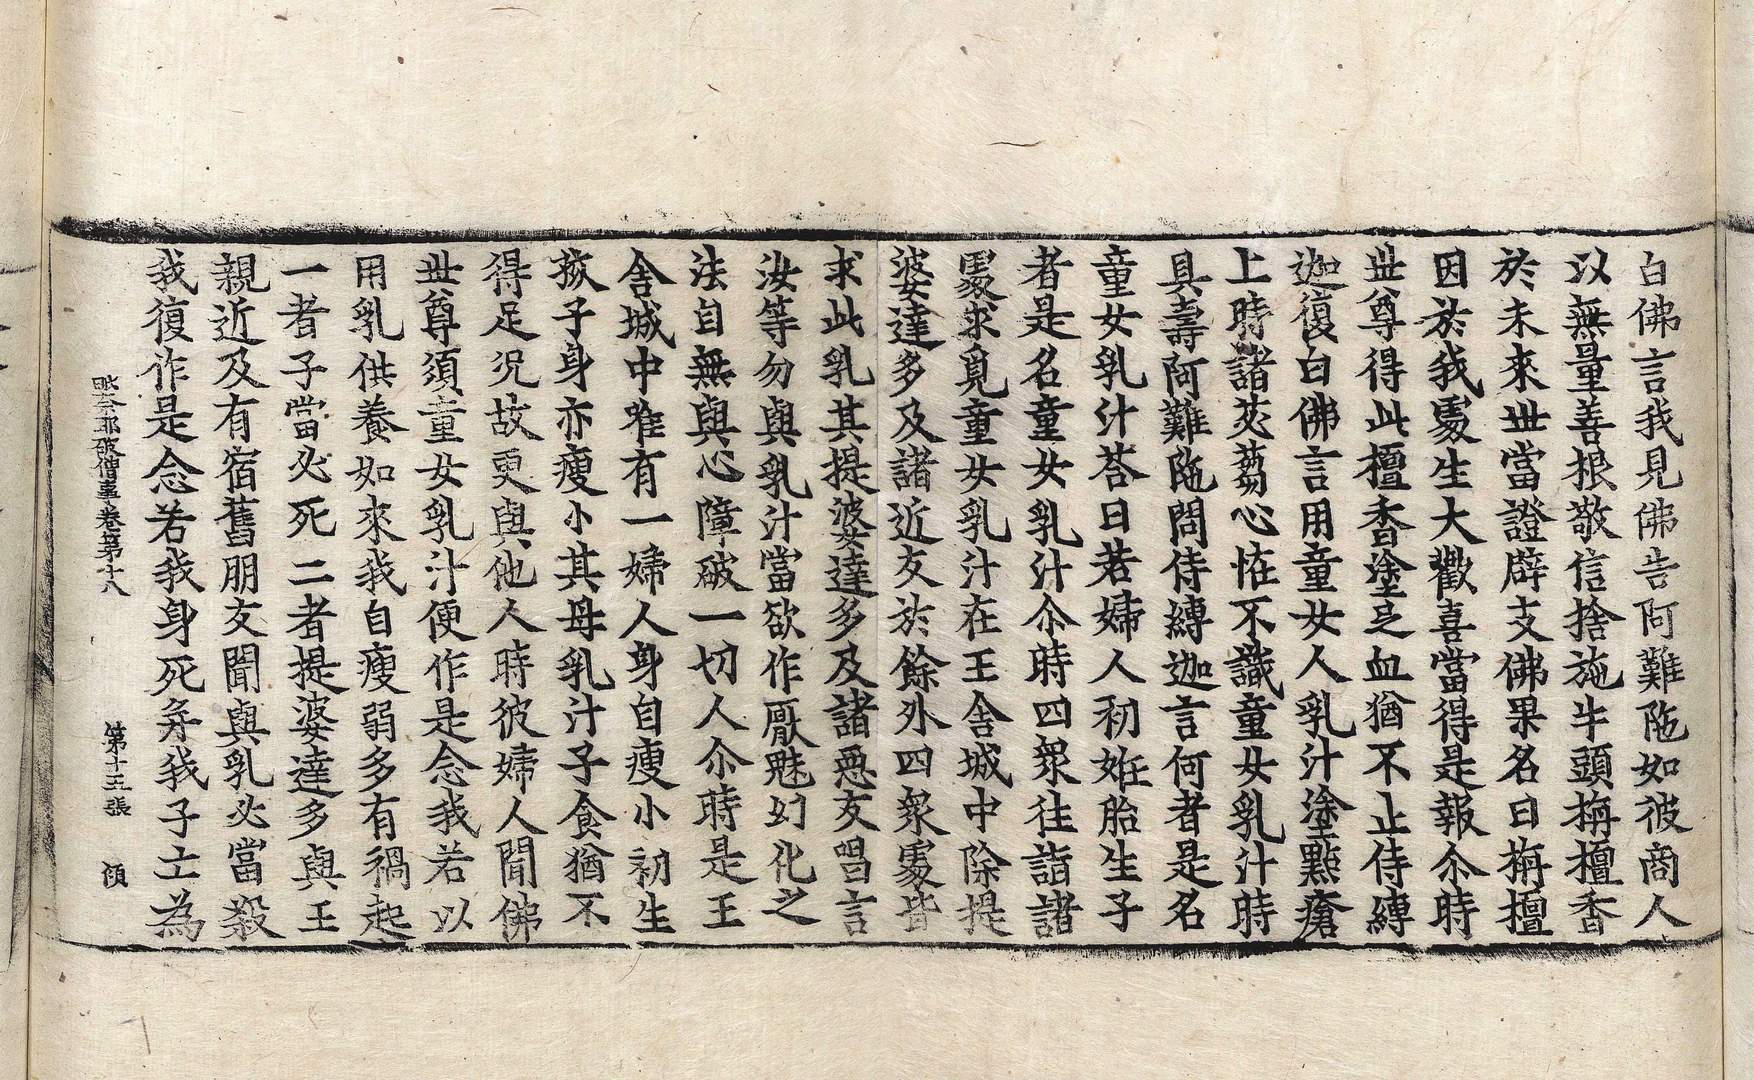 白佛言我見佛告阿難陁如彼商人
以無量善根敬信捨施牛頭栴檀香
於未來丗當證辟支佛果名曰栴檀
因於我䖏生大歡喜當得是報尒時
丗尊得此檀香塗已血猶不止侍縛
迦復白佛言用童女人乳汁塗點瘡
上時諸苾蒭心恠不識童女乳汁時
具壽阿難陁問侍縛迦言何者是名
童女乳汁荅曰若婦人初姙胎生子
者是名童女乳汁尒時四衆往詣諸
䖏求覓童女乳汁在王舍城中除提
婆達多及諸近友於餘外四衆䖏皆
求此乳其提婆達多及諸惡友唱言
汝等勿與乳汁當欲作厭魅幻化之
法自無與心障破一切人尒時是王
舍城中唯有一婦人身自瘦小初生
孩子身亦瘦小其母乳汁子食猶不
得足况故更與他人時彼婦人聞佛
丗尊須童女乳汁便作是念我若以
用乳供養如來我自瘦弱多有禍起
一者子當必死二者提婆達多與王
親近及有宿舊朋友聞與乳必當殺
我復作是念若我身死弃我子士為
毗奈耶破僧事卷第十八 第十五張 頎